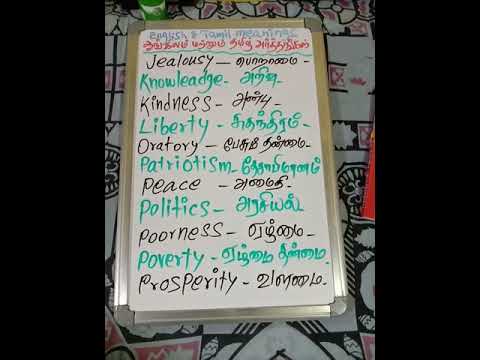 English & Tamil meanings
ஆங்கிலம் மற்றும் தமிழ் அர்த்தங்கள்
Jealousy - பொறாமை -
Knowleadge - அறிவு -
Kindness - அன்பு -
Liberty - சுதந்திரம் -
Oratory - பேசும் தன்மை -
Patriotism - தேசாபிமானம்
Peace - அமைதி -
Politics - அரசியல்
Poorness - ஏழ்மை -
Poverty - ஏழ்மை தன்மை -
Prosperity - வளமை -